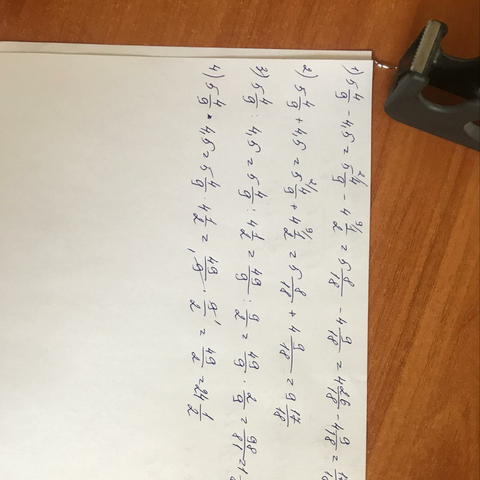 1) 5 4/9 - 4,5 = 5 4/9 - 4 1/2 = 5 8/18 - 4 9/18 = 4 26/18 - 4 9/18 =
2) 5 4/9 + 4,5 = 5 4/9 + 4 1/2 = 5 8/18 + 4 9/18 = 9 17/18
3) 5 4/9 : 4,5 = 5 4/9 : 4 1/2 = 49/9 : 9/2 = 49/9 · 2/9 = 98/81 = 1
4) 5 4/9 · 4,5 = 5 4/9 · 4 1/2 = 49/9 · 9/2 = 49/2 = 24 1/2